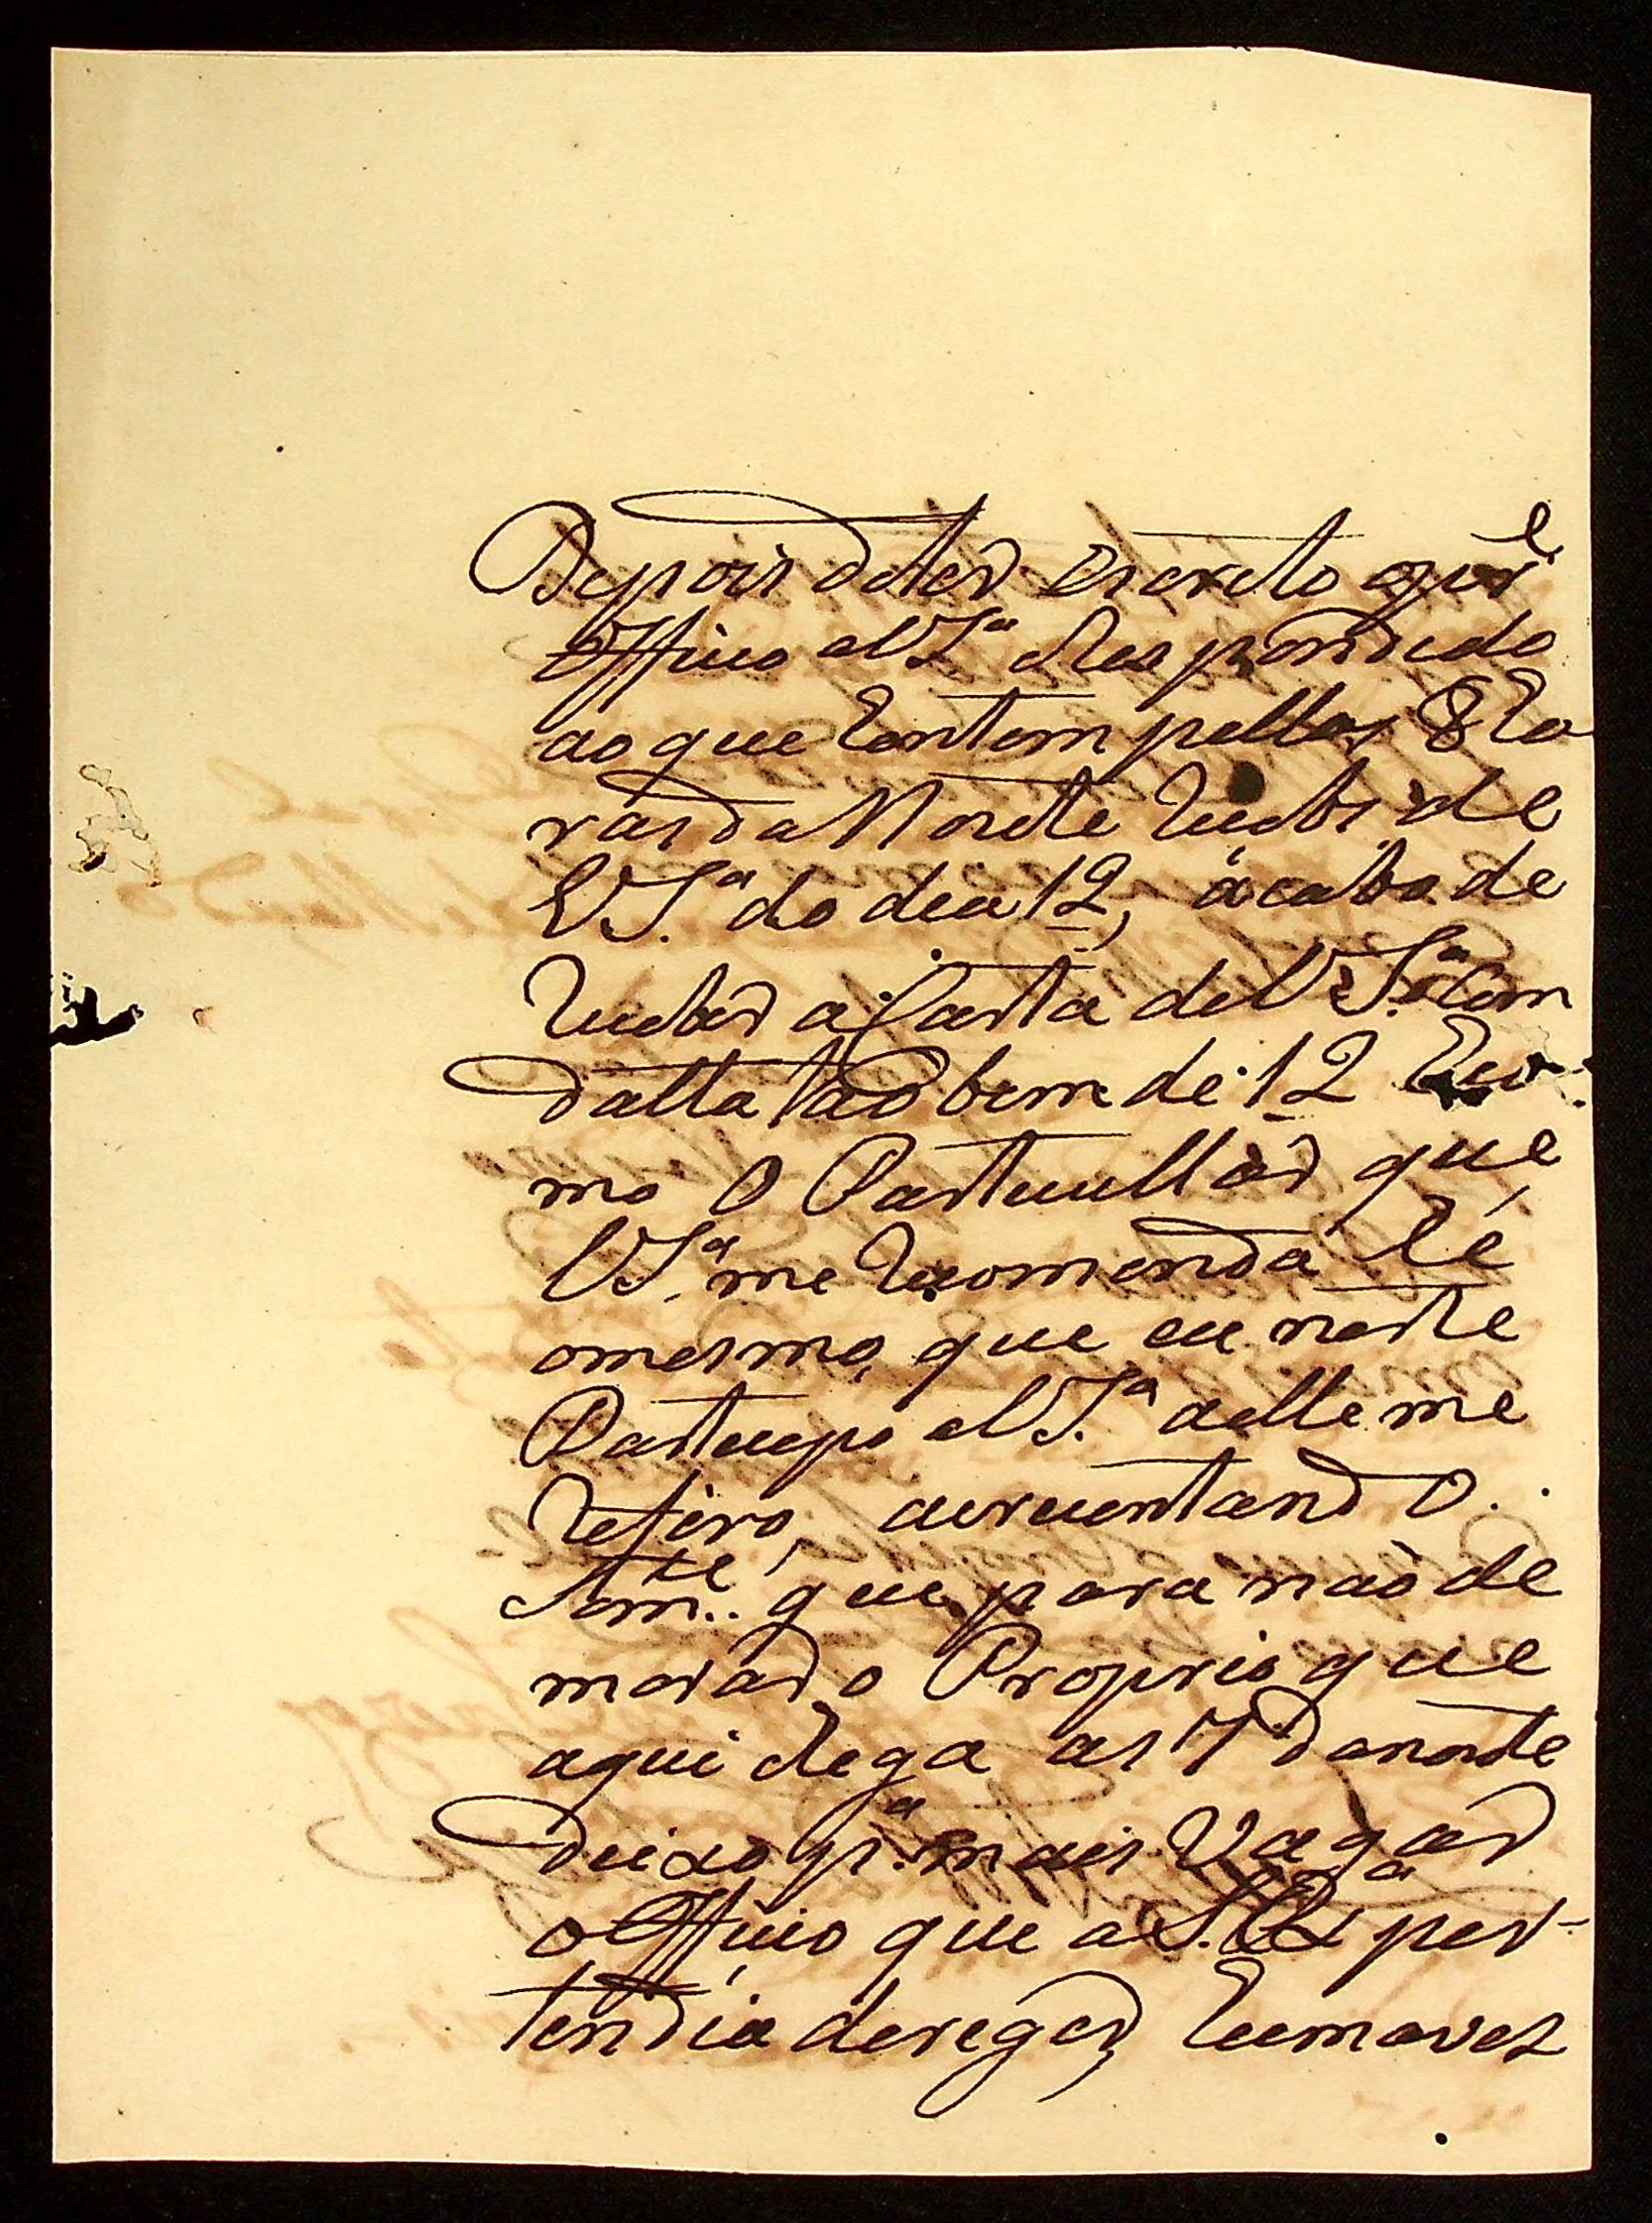 Depois deter escrito o prẽ
Officio aVS.ª Respondido
ao que hontem pellas 8 ho
ras da Noute recebi de
VS.ª do dia 12, acabo de
receber a Carta de VS.ª Com
datta tãobem de 12 e co
mo O Particullar que
VS.ª me recomenda hé
omesmo, que eu neste
Participo aVS.ª aelle me
refiro, acrecentando
Som.te que para não de
morar o Proprio que
aqui chega as 7 danoute
deixo p.ª mais Vagar
o Officio que aS. Ex.ª per-
tendia deregir, huma vez